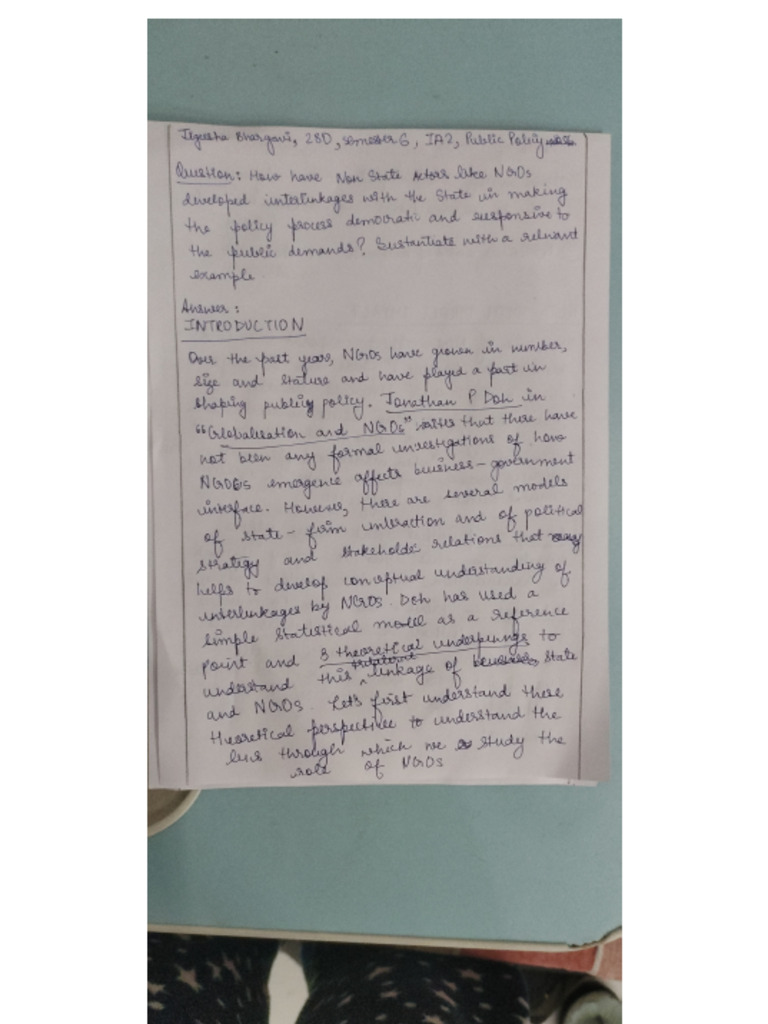 Bhargavi, 280, semester 6, IA2, Public Policy
Question: How have Non State Actors like NGOs
developed interlinkages with the State in making
the policy process democratic and responsive to
the public demands? Sustantiate with a relevant
example
Answer:
INTRODUCTION
Over the past years, NGOs have grown in number,
size and stature and have played a part in
shaping public policy. Jonathan P Doh in
"Globalisation and NGOs" writes that there have
not been any formal investigations of how
NGOs emergence affects business-government
interface. However, there are several models
of state-firm interaction and of political
strategy and stakeholder relations that
helps to develop conceptual understanding of
interlinkages by NGOs. Doh has used a
simple statistical model as a reference
point and 3 theoretical underpinnings to
understand this trilateral linkage of business, state
and NGOs. Let's first understand these
theoretical perspective to understand the
lens through which we study the
role of NGOs